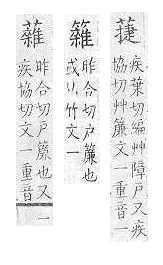 䓹
疾葉切編艸障戸又疾
協切艸簾文一重音一
昨合切戸簾也
或从竹文一
䕹
昨合切戸簾也又
疾協切文一重音一